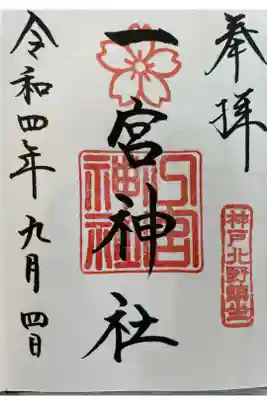 奉拝
神戸北野
一宮神社
宮
神社
令和四年九月四日